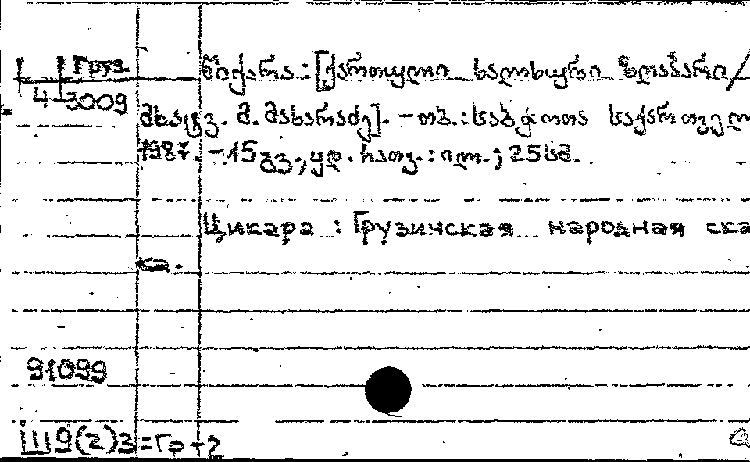 Груз
4-3009
წიქარა : [ქართული ხალხური ზღაპარი/
მხატვ. მ. მახარაძე]. – თბ. : საბჭოთა საქართველო
1987. – 15გვ., ყდ. ჩათვ. : ილ. ; 25სმ.
Цикара : Грузинская народная ска
91099
Ш9(2)3=Гр+2